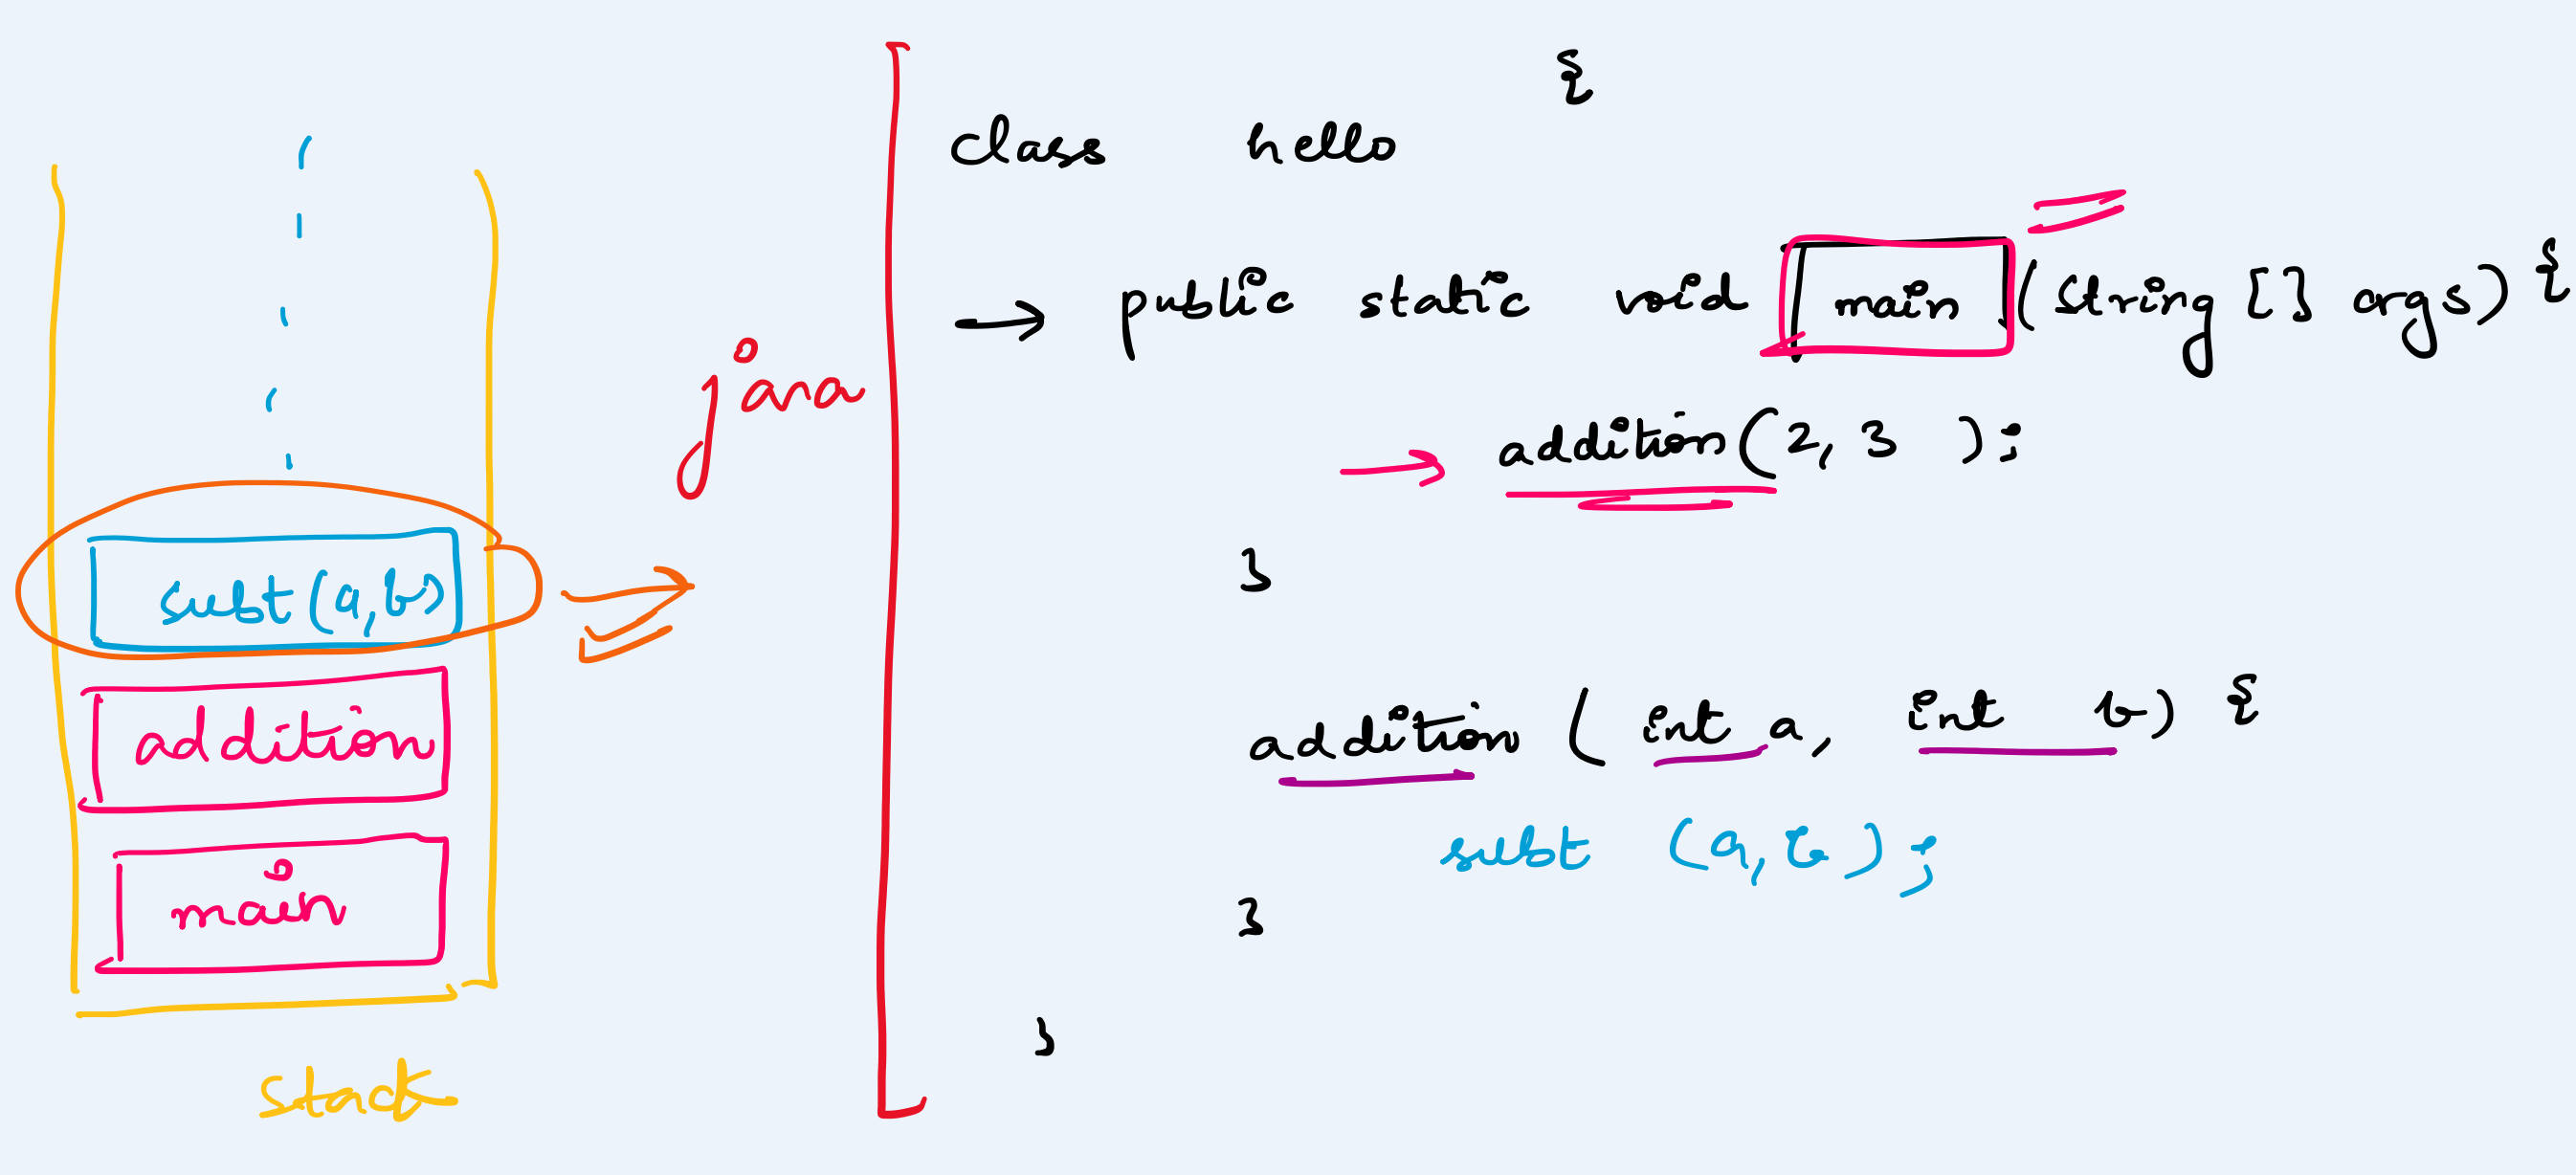 subt(a,b)
addition
main
stack
java
class hello {
→ public static void main (String [] args) {
→ addition(2, 3 );
}
addition ( int a, int b) {
subt (a,b);
}
}